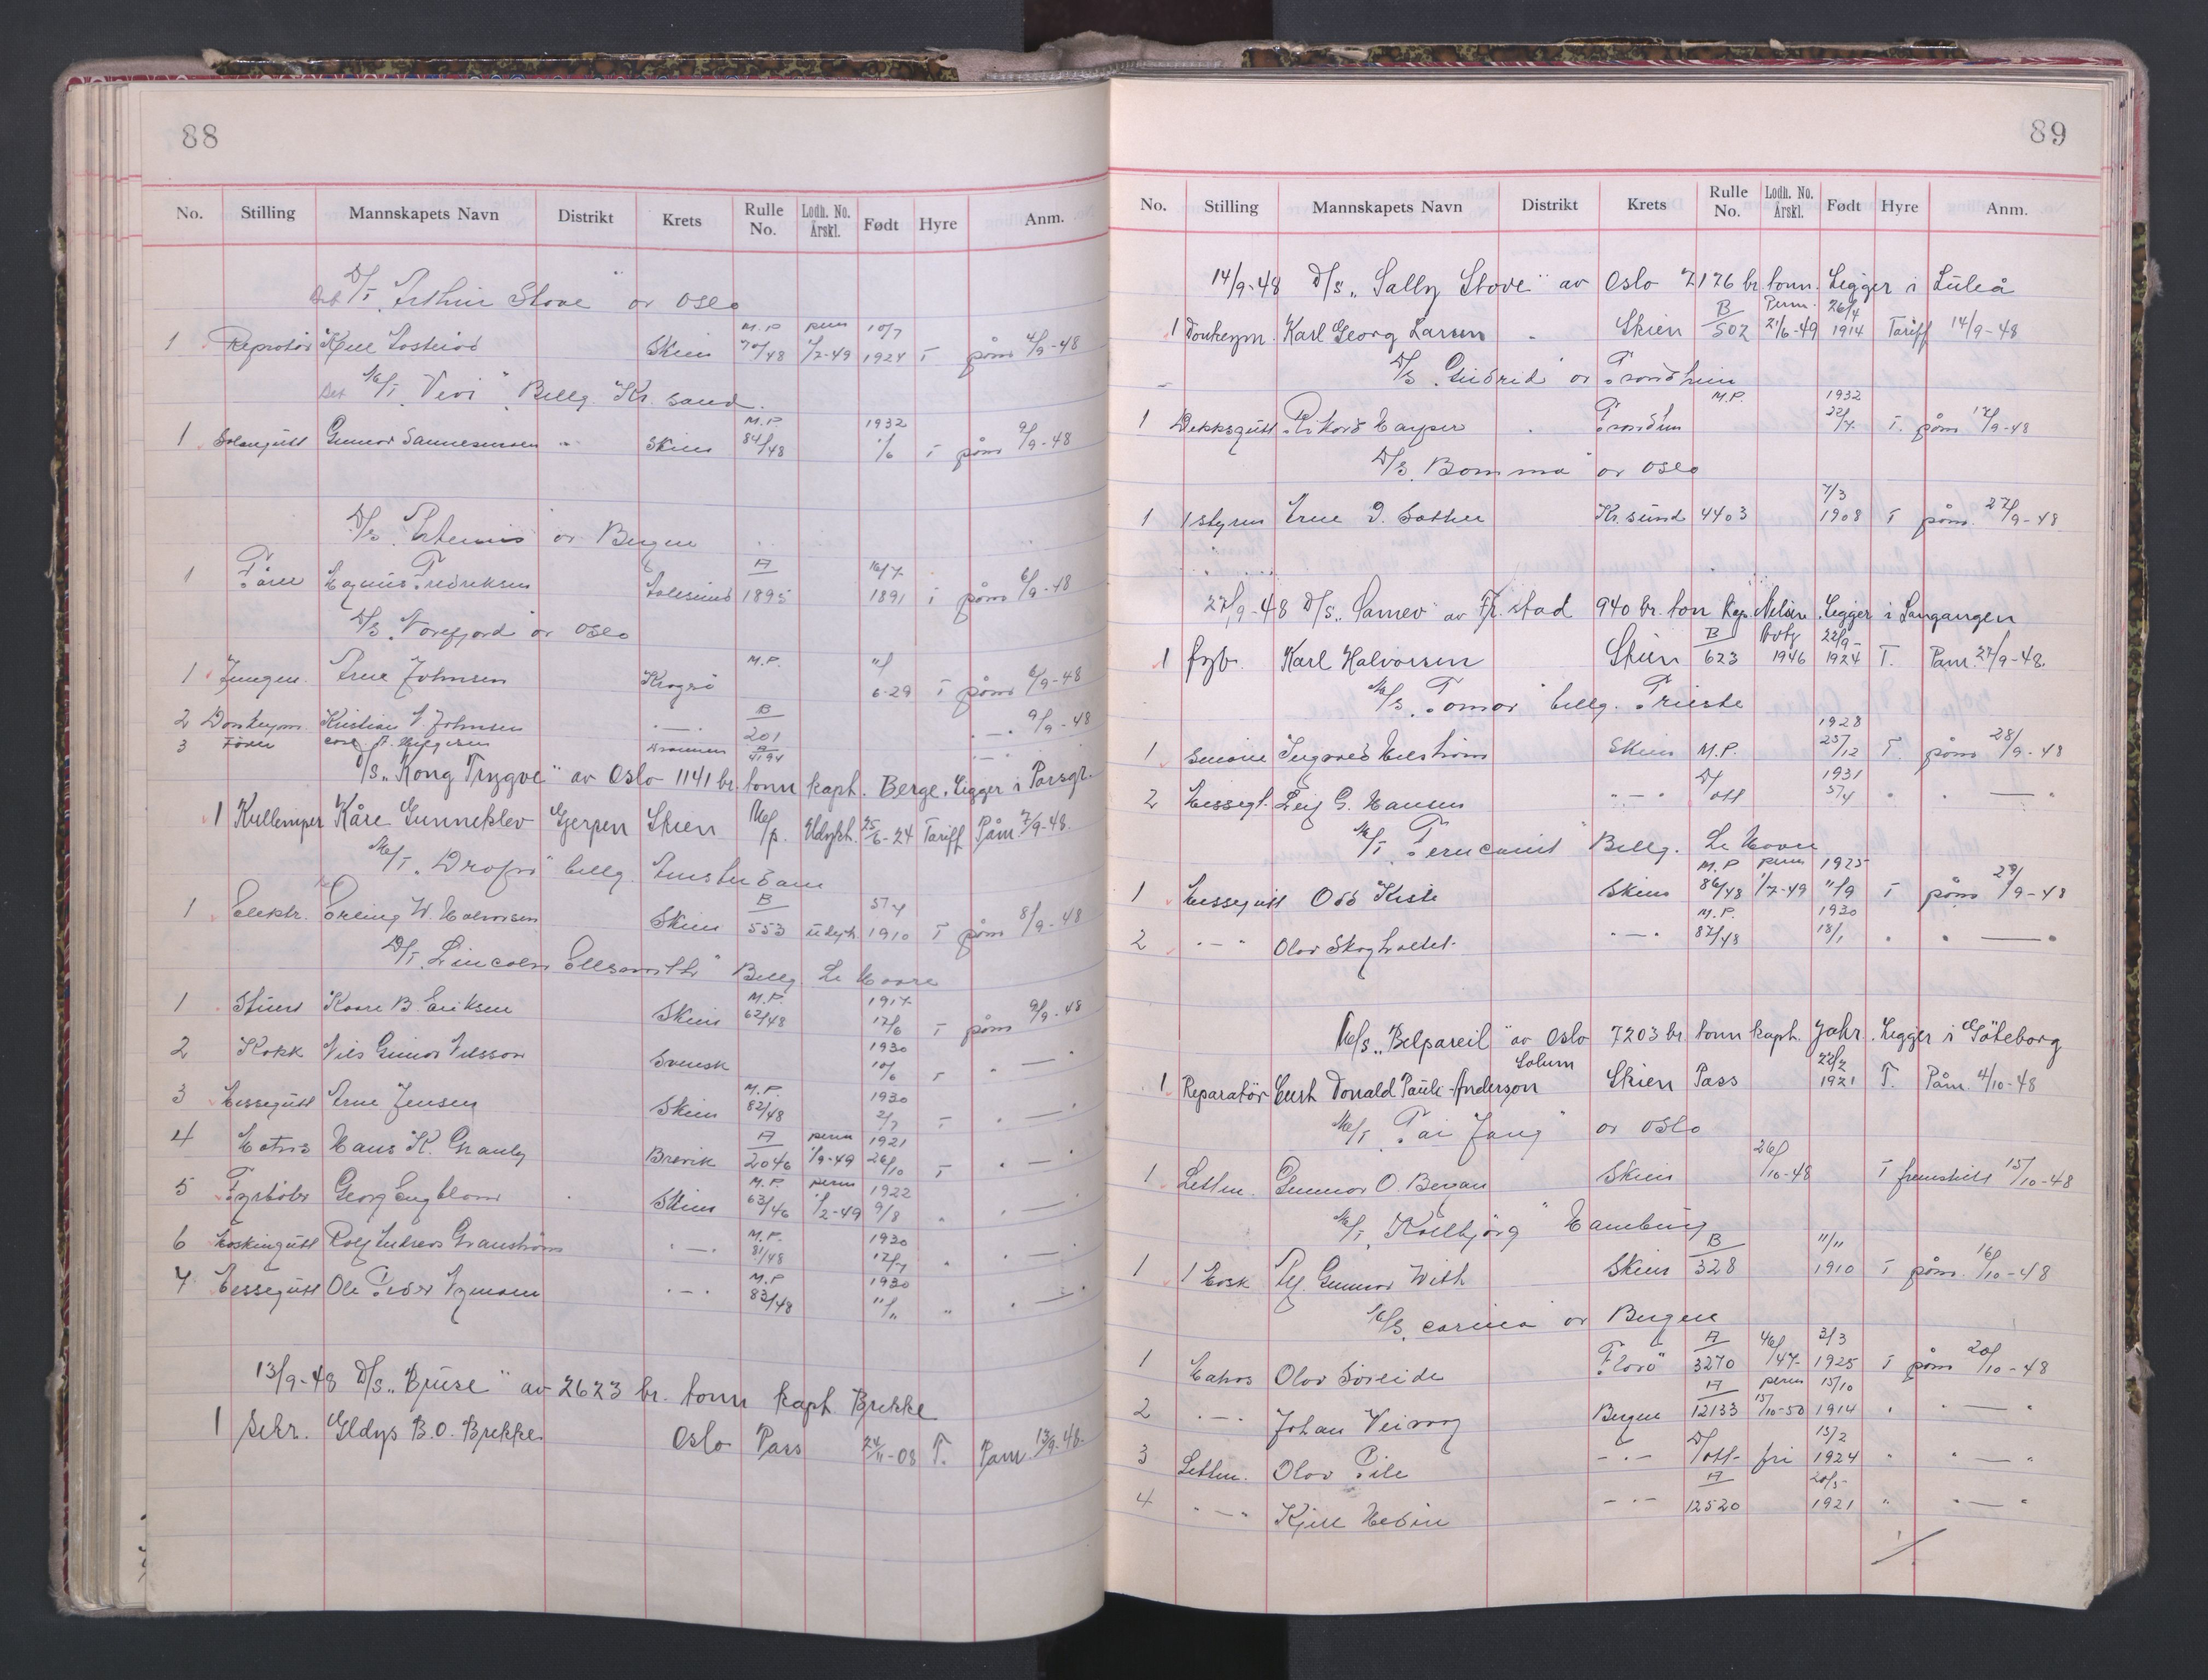 88
No. Stilling Mannskapets Navn Distrikt Krets Rulle No. Lodh. No. Årskl. Født Hyre Anm.
D/T „Arthur Stove" av Oslo
M.P. perm 10/7
1 Reparatør Kjell Skien 70/48 1/7-49 1924 T påm 4/9-48
M/T „Vivi" Bellg. Kr. sand.
M.P. 1932
1 Gunnar Sannesmoen Skien 84/48 1/6 T påm 9/9-48
D/S „Artemis" av Bergen
A 16/7
1 Magnus Fredriksen Aalesund 1895 1891 T påm 6/9-48
D/S „Norefjord" av Oslo
M.P. 11/
1 Jungm. Arne Johnsen Kragrø 6-29 T påm 6/9-48
B
2 Donkeym. Kristian A. Johnsen -"- 201 9/9-48
3 Fører Drammen A 4194
D/S „Kong Trygve" av Oslo 1141 br. tonn kapt. Berge. Ligger i Porsgr.
1 Kullemper Kåre Gunneklev Gjerpen Skien M/p. Udykt. 25/6-24 Tariff Påm 7/9-48.
M/T „Drafn" bellg. Amsterdam
B 5/4
1 Elektr. Erling W. Halvorsen Skien 553 udykt. 1910 T påm 8/9-48
D/T „Lincoln Ellsworth" Bellg. Le Havre
M.P. 1917
1 Stuert Kaare B. Eriksen Skien 62/48 17/6 T påm 9/9-48
1930
2 Kokk Nils Gunnar Nilsson Svensk 10/6 T " — "
M.P. 1930
3 Messegutt Arne Jensen Skien 82/48 2/7 T " — "
A perm 1921
4 Matros Hans K. Granly Brevik 2046 1/9-49 26/10 T " — "
M.P. perm 1922
5 Fyrbøter Georg Engblom Skien 63/46 1/2-49 9/8 " " — "
M.P. 1930
6 Maskingutt Rolf Andreas Granstrøm " — " 81/48 17/7 " " — "
M.P. 1930
7 Messegutt Ole Peder Nymoen " — " 83/48 11/11 " " — "
13/9-48 D/S „Bruse" av 2623 br. tonn kapt. Brekke
1 Sekr. Gldys B.O. Brekke. Oslo Pass 24/11-08 T. Påm. 13/9-48.
89
No. Stilling Mannskapets Navn Distrikt Krets Rulle No. Lodh. No. Årskl. Født Hyre Anm.
14/9-48 D/S „Sally Stove" av Oslo 7176 br. tonn. Ligger i Luleå
B Perm. 26/4
1 Donkeym. Karl Georg Larsen " Skien 502 21/6-49 1914 Tariff 14/9-48
D/S „Gudrid" av Trondheim
M.P. 1932
1 Dekksgutt Rikard Harper " Trondhm 22/7. T. påm 17/9-48
D/S „Bomma" av Oslo
7/3
1 1 styrm Arne J. Sother Kr. sund 4403 1908 T påm. 27/9-48
27/9-48 D/S „Samev" av Fr. stad 940 br. ton Kap. Nilsen. Ligger i Langangen
B 22/9-
1 fyb. Karl Halvorsen Skien 623 1946 1924 T. Påm. 27/9-48
M/S „Tomar" bellg. Trieste
1928
1 Ingvald Skien M.P. 25/12 T. påm 28/9-48
D/ 1931
2 Messegt. Leif G. Hansen " — " att 5/4 " " — "
M/T „Teucarist" Bellg. Le Havre
M.P. perm 1925
1 Messegutt Odd Skien 86/48 1/7-49 11/9 T påm 29/9-48
M.P. 1930
2 " — " Olav Skogholtet. " — " 87/48 18/1 " " — "
M/S „Belpareil" av Oslo 7203 br. tonn kapt. Jahr. Ligger i Göteborg
Solum 22/2
1 Reparatør Curt Donald Pauli-Anderson Skien Pass 1921 T. Påm. 4/10-48
M/T „Tai Yang" av Oslo
26/
1 Lettm. Gunnar O. Bergan Skien /10-48 T fremstilt 15/10-48
M/T „Kollbjörg" Hamburg
B 11/11
1 1 Mask Gunnar With Skien 328 1910 T påm. 16/10-48
M/S „Corina" av Bergen
A 46/ 3/3
1 Matros Olav Søreide Florø 3270 /47- 1925 T påm 20/10-48
A perm 15/10
2 " — " Johan Bergen 12133 15/10-50 1914 " " — "
D/ 13/2
3 Lettm. Olav Pile " — " att- fri 1924 " " — "
A 20/5-
4 " — " Kjell Hedin " — " 12520 1921 " " — "